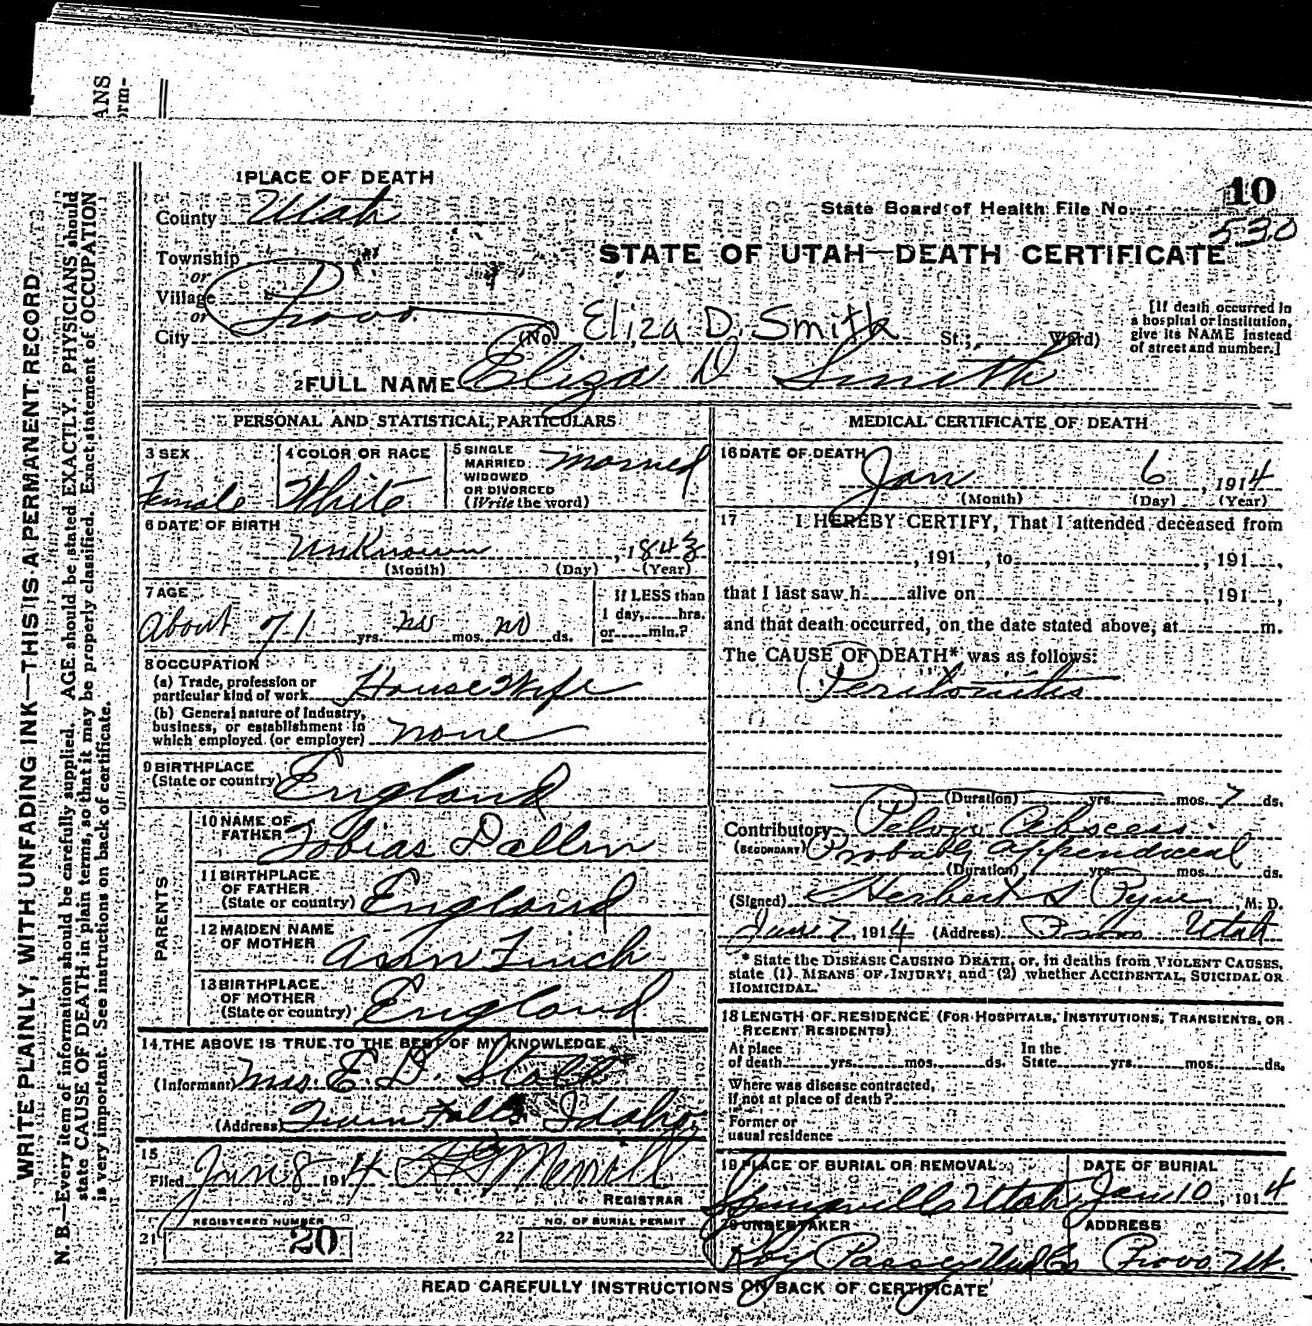 ANS
orm-
WRITE PLAINLY, WITH UNFADING INK—THIS IS A PERMANENT RECORD
N. B.—Every item of information should be carefully supplied. AGE should be stated EXACTLY. PHYSICIANS should
state CAUSE OF DEATH in plain terms, so that it may be properly classified. Exact statement of OCCUPATION
is very important. See instructions on back of certificate.
1 PLACE OF DEATH
County Utah
State Board of Health File No. 10
530
Township
or
Village
or
City Provo
STATE OF UTAH—DEATH CERTIFICATE
(No. Eliza D. Smith St.; Ward)
[If death occurred in
a hospital or institution,
give its NAME instead
of street and number.]
2 FULL NAME Eliza D Smith
PERSONAL AND STATISTICAL PARTICULARS
3 SEX
Female
4 COLOR OR RACE
White
5 SINGLE
MARRIED
WIDOWED
OR DIVORCED
(Write the word)
Married
6 DATE OF BIRTH
Unknown, 1843
(Month) (Day) (Year)
7 AGE
About 71 yrs. no mos. no ds.
If LESS than
1 day, hrs.
or min.?
8 OCCUPATION
(a) Trade, profession or
particular kind of work House Wife
(b) General nature of industry,
business, or establishment in
which employed (or employer) none
9 BIRTHPLACE
(State or country) England
PARENTS
10 NAME OF
FATHER Tobias Dallin
11 BIRTHPLACE
OF FATHER
(State or country) England
12 MAIDEN NAME
OF MOTHER Finch
13 BIRTHPLACE
OF MOTHER
(State or country) England
14 THE ABOVE IS TRUE TO THE BEST OF MY KNOWLEDGE
(Informant) Mrs. E. D.
(Address) Twin Falls Idaho
15
Filed Jan 8 1914 Merrill
REGISTRAR
21 REGISTERED NUMBER
20
22 NO. OF BURIAL PERMIT
MEDICAL CERTIFICATE OF DEATH
16 DATE OF DEATH
Jan 6, 1914
(Month) (Day) (Year)
17 I HEREBY CERTIFY, That I attended deceased from
, 191 , to , 191 ,
that I last saw h alive on , 191 ,
and that death occurred, on the date stated above, at m.
The CAUSE OF DEATH* was as follows:
Peritonitis
(Duration) yrs. mos. 7 ds.
Contributory Pelvic Abscess.
(SECONDARY) Probably appendiceal
(Duration) yrs. mos. ds.
(Signed) Herbert S Pyne, M. D.
7, 1914 (Address) Provo Utah
* State the DISEASE CAUSING DEATH, or, in deaths from VIOLENT CAUSES,
state (1) MEANS OF INJURY; and (2) whether ACCIDENTAL, SUICIDAL OR
HOMICIDAL.
18 LENGTH OF RESIDENCE (FOR HOSPITALS, INSTITUTIONS, TRANSIENTS, OR
RECENT RESIDENTS)
At place
of death yrs. mos. ds.
In the
State yrs. mos. ds.
Where was disease contracted,
if not at place of death?
Former or
usual residence
19 PLACE OF BURIAL OR REMOVAL
Springville Utah
DATE OF BURIAL
Jan 10, 1914
20 UNDERTAKER
ADDRESS
Provo. Ut.
READ CAREFULLY INSTRUCTIONS ON BACK OF CERTIFICATE